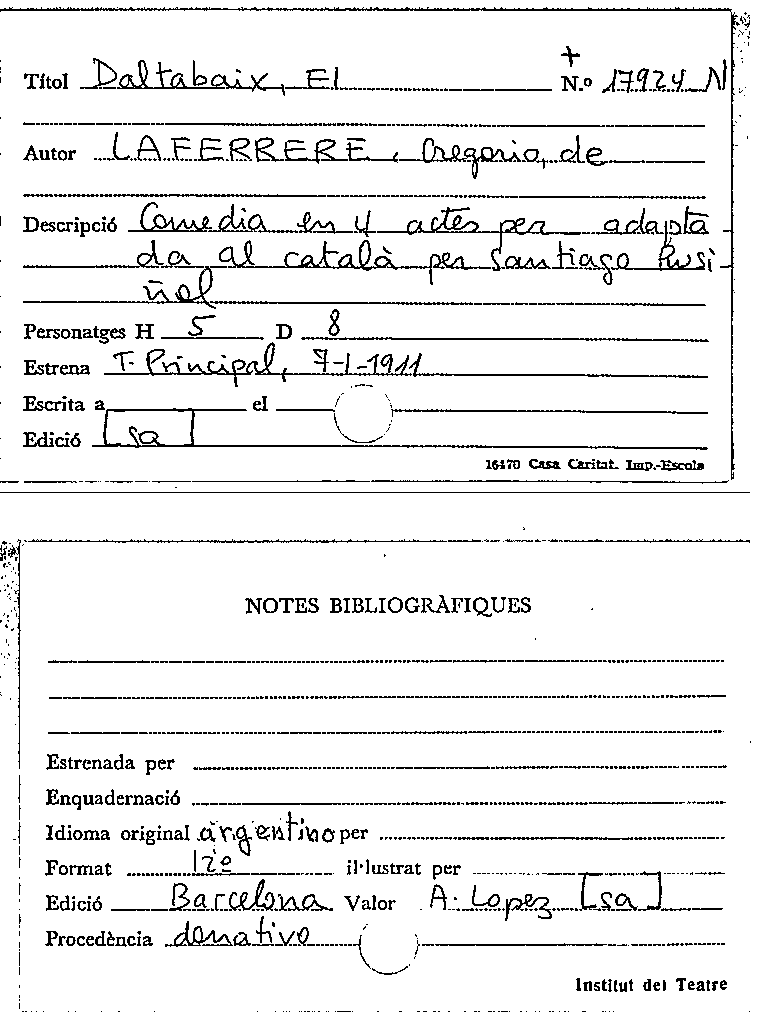 +
Títol Daltabaix, El N.º 17924 N
Autor LAFERRERE, Gregorio, de
Descripció Comedia en 4 actes per adapta
da al català per Santiago Rusi-
ñol
Personatges H 5 D 8
Estrena T. Principal, 7-1-1911
Escrita a el
Edició [sa]
16470 Casa Caritat. Imp.-Escola
NOTES BIBLIOGRÀFIQUES
Estrenada per
Enquadernació
Idioma original argentino per
Format 12º il·lustrat per
Edició Barcelona Valor A. Lopez [sa]
Procedència donativo
Institut del Teatre